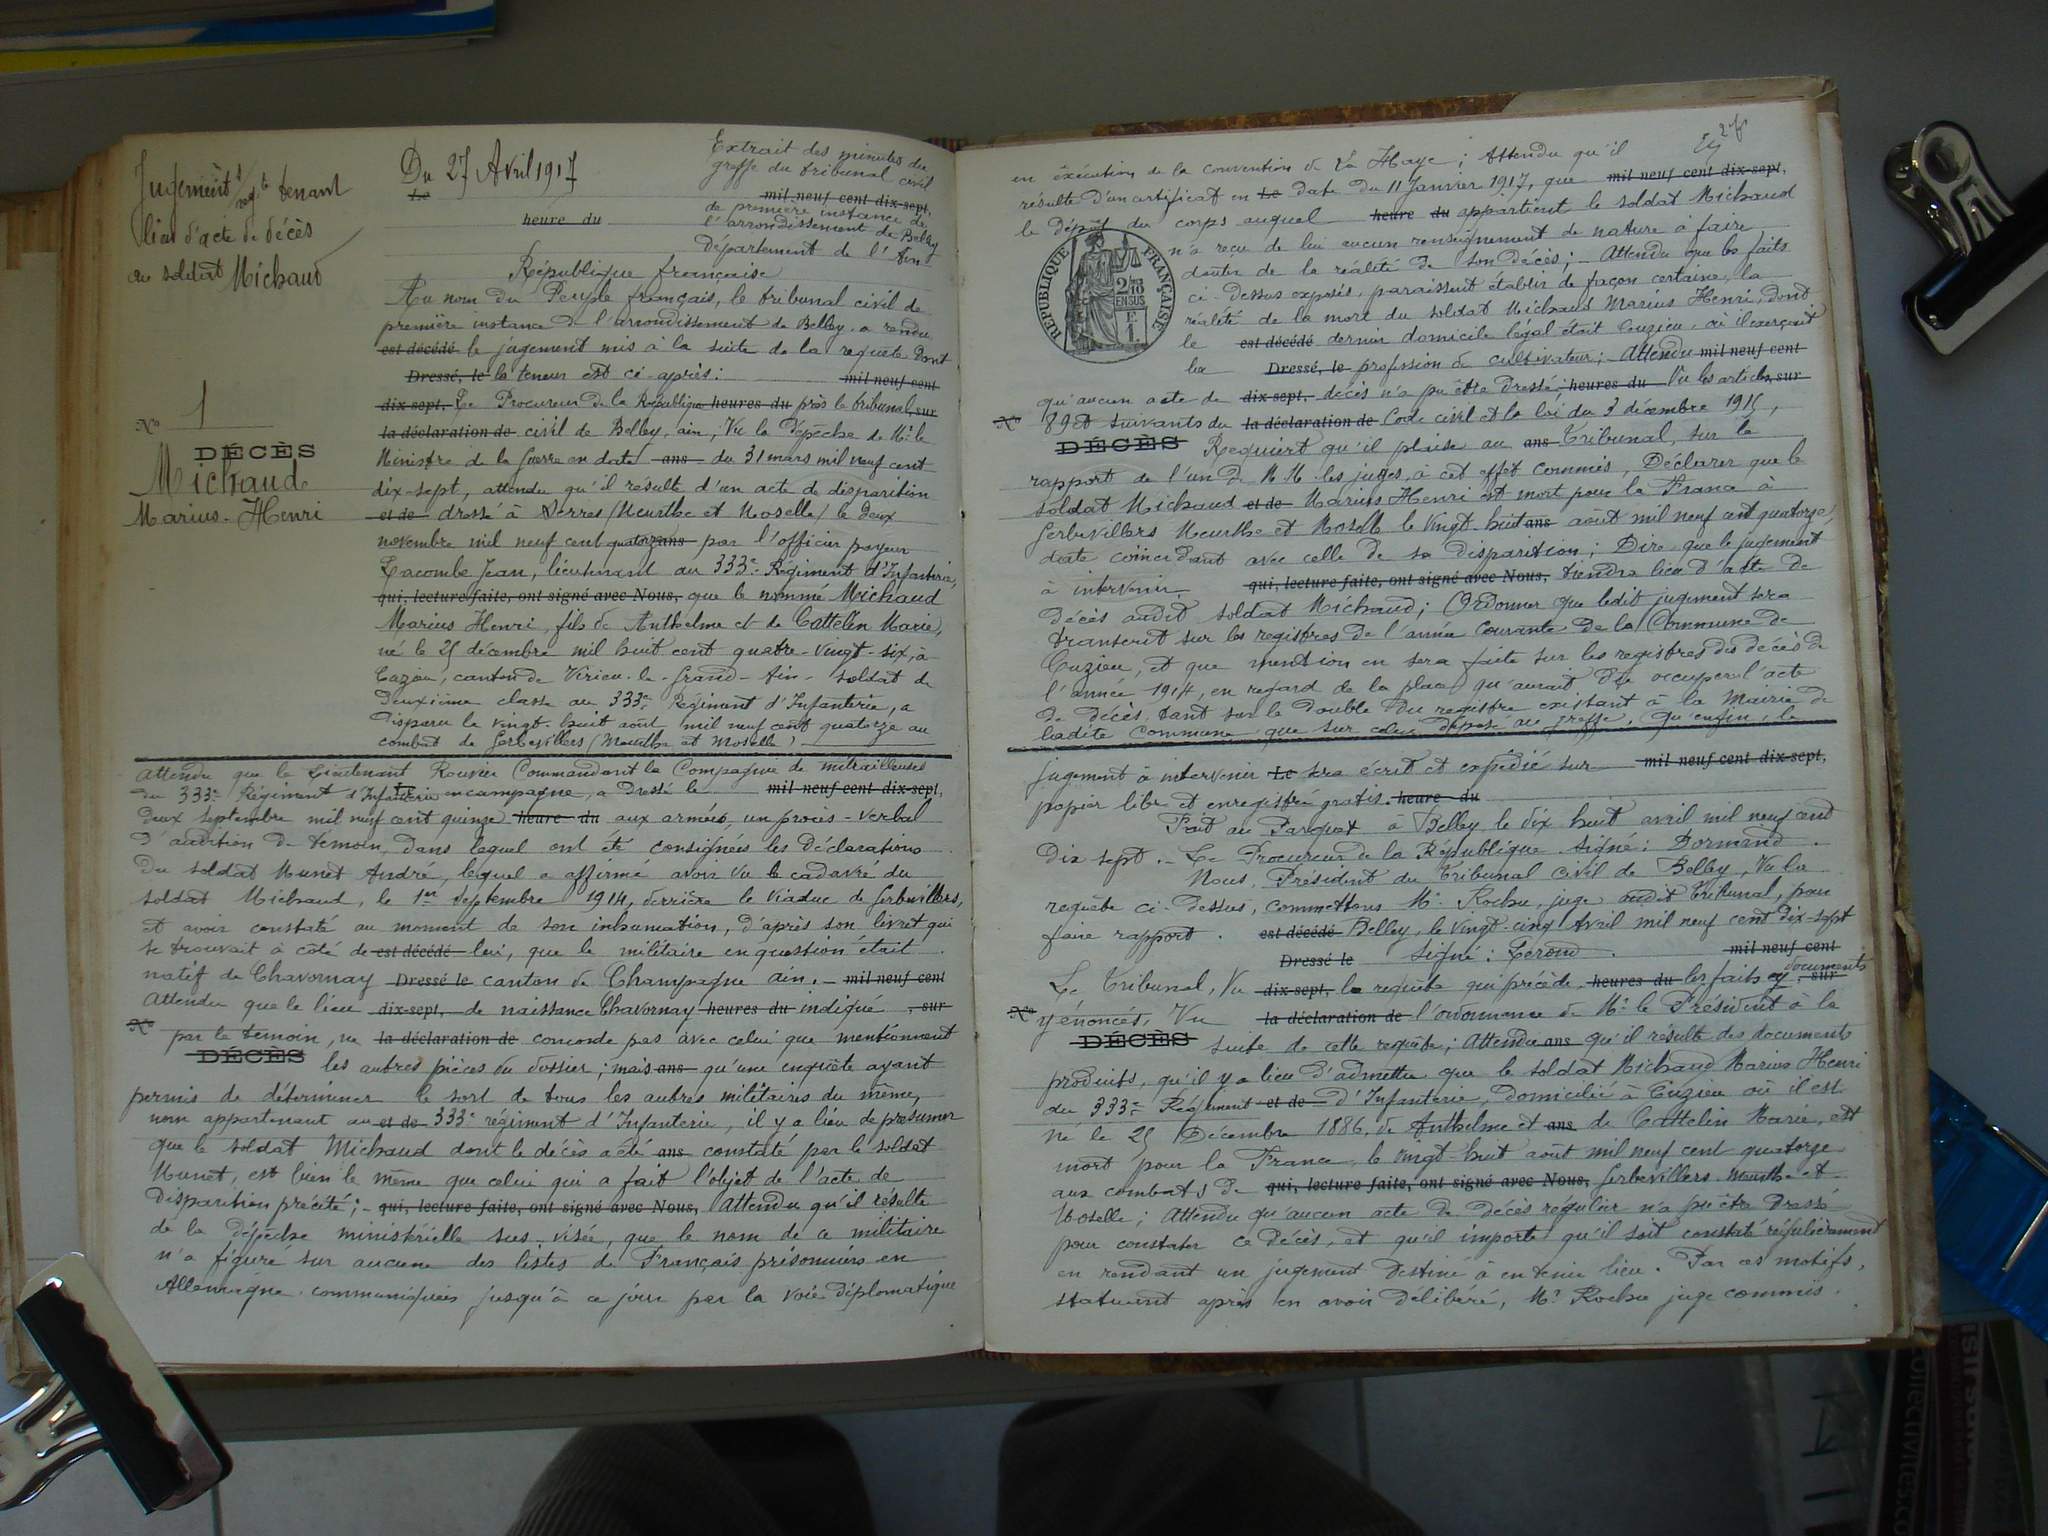 Jugement
tenant
lieu d'acte de décès
au soldat Michaud
Nº 1
DÉCÈS
Michaud
Marius-Henri
Du 27 Avril 1917
Le
Extrait des minutes du
greffe du tribunal civil
mil neuf cent dix-sept,
de première instance de
heure du l'arrondissement de Belley
département de l'Ain
République française
Au nom du Peuple français, le tribunal civil de
première instance de l'arrondissement de Belley a rendu
est décédé le jugement mis à la suite de la requête dont
Dressé, le la teneur est ci-après: mil neuf cent
dix-sept, Le Procureur de la République heures du près le tribunal, sur
la déclaration de civil de Belley, ain; Vu la dépêche de Mr le
Ministre de la Guerre en date ans du 31 mars mil neuf cent
dix-sept, attendu qu'il résulte d'un acte de disparition
et de dressé à Serres (Meurthe et Moselle) le deux
novembre mil neuf cent quatorze ans par l'officier payeur
Lacombe Jean, lieutenant au 333e Régiment d'Infanterie,
qui, lecture faite, ont signé avec Nous, que le nommé Michaud
Marius Henri, fils de Anthelme et de Cattelin Marie,
né le 25 décembre mil huit cent quatre-vingt-six, à
Cuzieu, canton de Virieu-le-Grand-Ain-soldat de
deuxième classe au 333e Régiment d'Infanterie, a
disparu le vingt-huit août mil neuf cent quatorze au
combat de Gerbevillers (Meurthe et Moselle)
Attendu que le Lieutenant Rouvier Commandant la Compagnie de mitrailleuses
du 333e Régiment d'Infanterie en campagne, a dressé le mil neuf cent dix-sept,
deux septembre mil neuf cent quinze heure du aux armées, un procès-verbal
d'audition de témoin, dans lequel ont été consignées les déclarations
du soldat Munet André, lequel a affirmé avoir vu le cadavre du
soldat Michaud, le 1er septembre 1914, derrière le viaduc de Gerbevillers,
et avoir constaté au moment de son inhumation, d'après son livret qui
se trouvait à côté de est décédé lui, que le militaire en question était
natif de Chavornay Dressé le canton de Champagne ain. mil neuf cent
Attendu que le lieu dix-sept, de naissance Chavornay heures du indiqué , sur
Nº
par le témoin, ne la déclaration de concorde pas avec celui que mentionnent
DÉCÈS les autres pièces du dossier; mais ans qu'une enquête ayant
permis de déterminer le sort de tous les autres militaires du même
nom appartenant au et de 333e régiment d'Infanterie, il y a lieu de présumer
que le soldat Michaud dont le décès a été ans constaté par le soldat
Munet, est bien le même que celui qui a fait l'objet de l'acte de
disparition précité; qui, lecture faite, ont signé avec Nous, Attendu qu'il résulte
de la dépêche ministérielle sus-visée, que le nom de ce militaire
n'a figuré sur aucune des listes de Français prisonniers en
Allemagne communiquées jusqu'à ce jour par la voie diplomatique
en exécution de la convention de La Haye; Attendu qu'il
résulte d'un certificat en Le date du 11 Janvier 1917, que mil neuf cent dix-sept,
le dépôt du corps auquel heure du appartient le soldat Michaud
n'a reçu de lui aucun renseignement de nature à faire
douter de la réalité de son décès; Attendu que les faits
ci-dessus exposés, paraissent établir de façon certaine, la
réalité de la mort du soldat Michaud Marius Henri, dont
le est décédé dernier domicile légal était Cuzieu, où il exerçait
la Dressé, le profession de cultivateur; Attendu mil neuf cent
qu'aucun acte de dix-sept, décès n'a pu être dressé; heures du Vu les articles, sur
Nº 89 et suivants du la déclaration de Code civil et la loi du 3 décembre 1915,
DÉCÈS Requiert qu'il plaise au ans Tribunal, sur le
rapport de l'un de MM. les juges, à cet effet commis, Déclarer que le
soldat Michaud et de Marius Henri est mort pour la France à
Gerbevillers Meurthe et Moselle le vingt-huit ans août mil neuf cent quatorze,
date coïncidant avec celle de sa disparition; Dire que le jugement
à intervenir qui, lecture faite, ont signé avec Nous, tiendra lieu d'acte de
décès audit soldat Michaud; Ordonner que ledit jugement sera
transcrit sur les registres de l'année courante de la Commune de
Cuzieu, et que mention en sera faite sur les registres des décès de
l'année 1914, en regard de la place qu'aurait dû occuper l'acte
de décès, tant sur le double du registre existant à la Mairie de
ladite commune que sur celui déposé au greffe, qu'enfin, le
RÉPUBLIQUE FRANÇAISE
jugement à intervenir Le sera écrit et expédié sur mil neuf cent dix-sept,
papier libre et enregistré gratis. heure du
Fait au Parquet à Belley le dix huit avril mil neuf cent
dix sept. Le Procureur de la République signé: Dormand.
Nous, Président du Tribunal civil de Belley, Vu la
requête ci-dessus, commettons Mr. Rochu, juge audit Tribunal, pour
faire rapport. est décédé Belley, le vingt-cinq Avril mil neuf cent dix-sept
Dressé le signé: mil neuf cent
Le Tribunal, Vu dix-sept, la requête qui précède heures du les faits et documents , sur
Nº y énoncés, Vu la déclaration de l'ordonnance de Mr. le Président à la
DÉCÈS suite de cette requête; Attendu ans qu'il résulte des documents
produits, qu'il y a lieu d'admettre que le soldat Michaud Marius Henri
du 333e Régiment et de d'Infanterie, domicilié à Cuzieu où il est
né le 25 Décembre 1886, de Anthelme et ans de Cattelin Marie, est
mort pour la France, le vingt-huit août mil neuf cent quatorze
aux combats de qui, lecture faite, ont signé avec Nous, Gerbevillers Meurthe et
Moselle; Attendu qu'aucun acte de décès régulier n'a pu être dressé
pour constater ce décès, et qu'il importe qu'il soit constaté régulièrement
en rendant un jugement destiné à en tenir lieu. Par ces motifs,
statuant après en avoir délibéré, Mr Rochu juge commis.